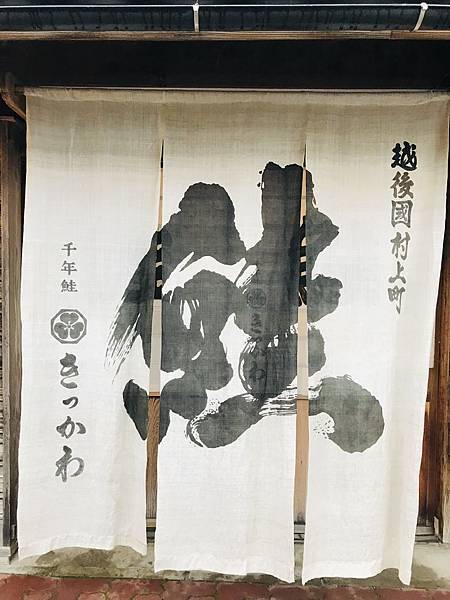 越後國村上町
鮭
千年鮭
きっかわ
きっかわ